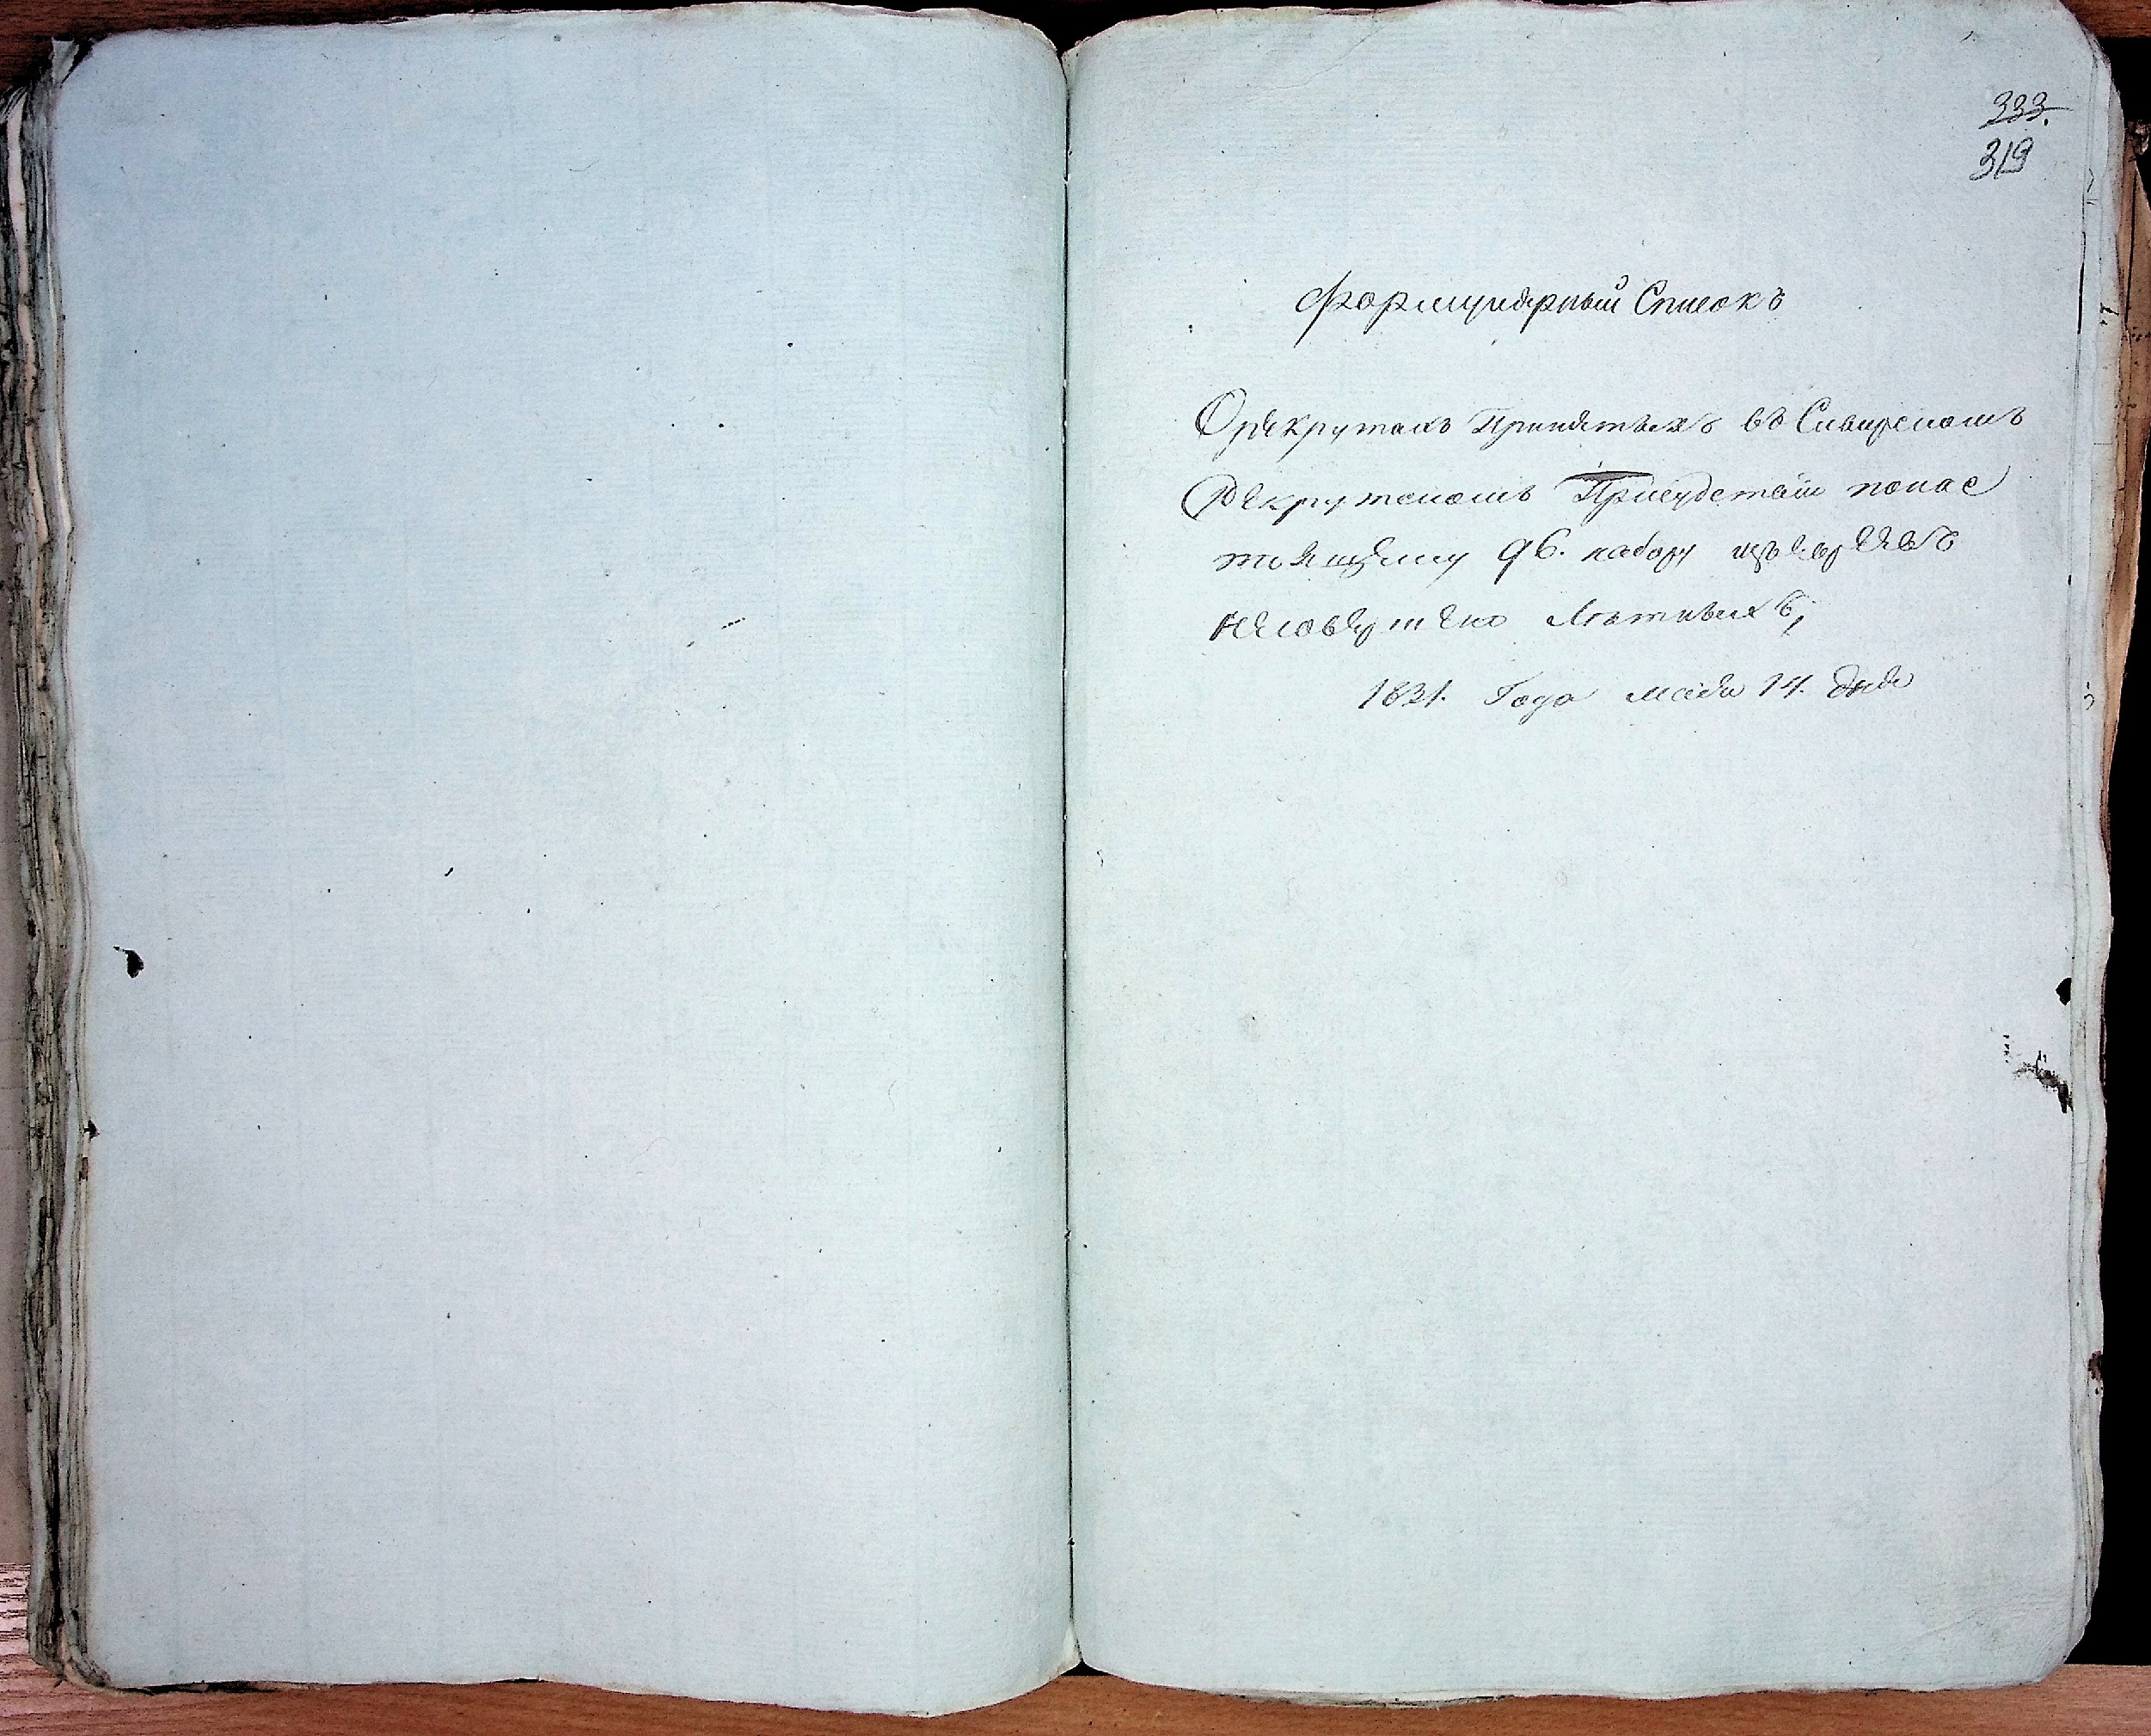 333.
319
Формулярный Списокъ
О рекрутахъ Принятыхъ въ Сибирскомъ
Рекрутскомъ Присудствіи понас
тоящему 96. набору изъ евреевъ
несовершено лѣтныхъ,
1831. Года маія 14. дня